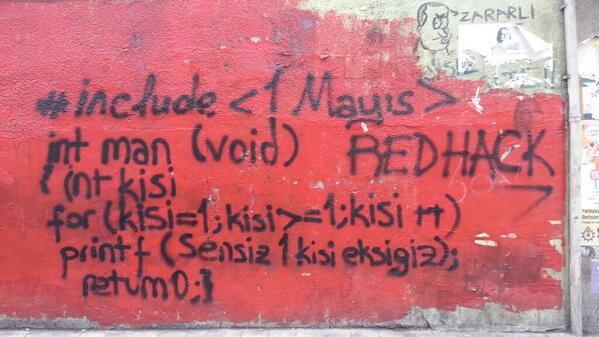 ZARARLI
#include <1 Mayıs>
int man (void)
REDHACK
{ int kisi
for (kisi=1;kisi>=1;kisi++)
printf (Sensiz 1 kisi eksigiz);
return 0;}